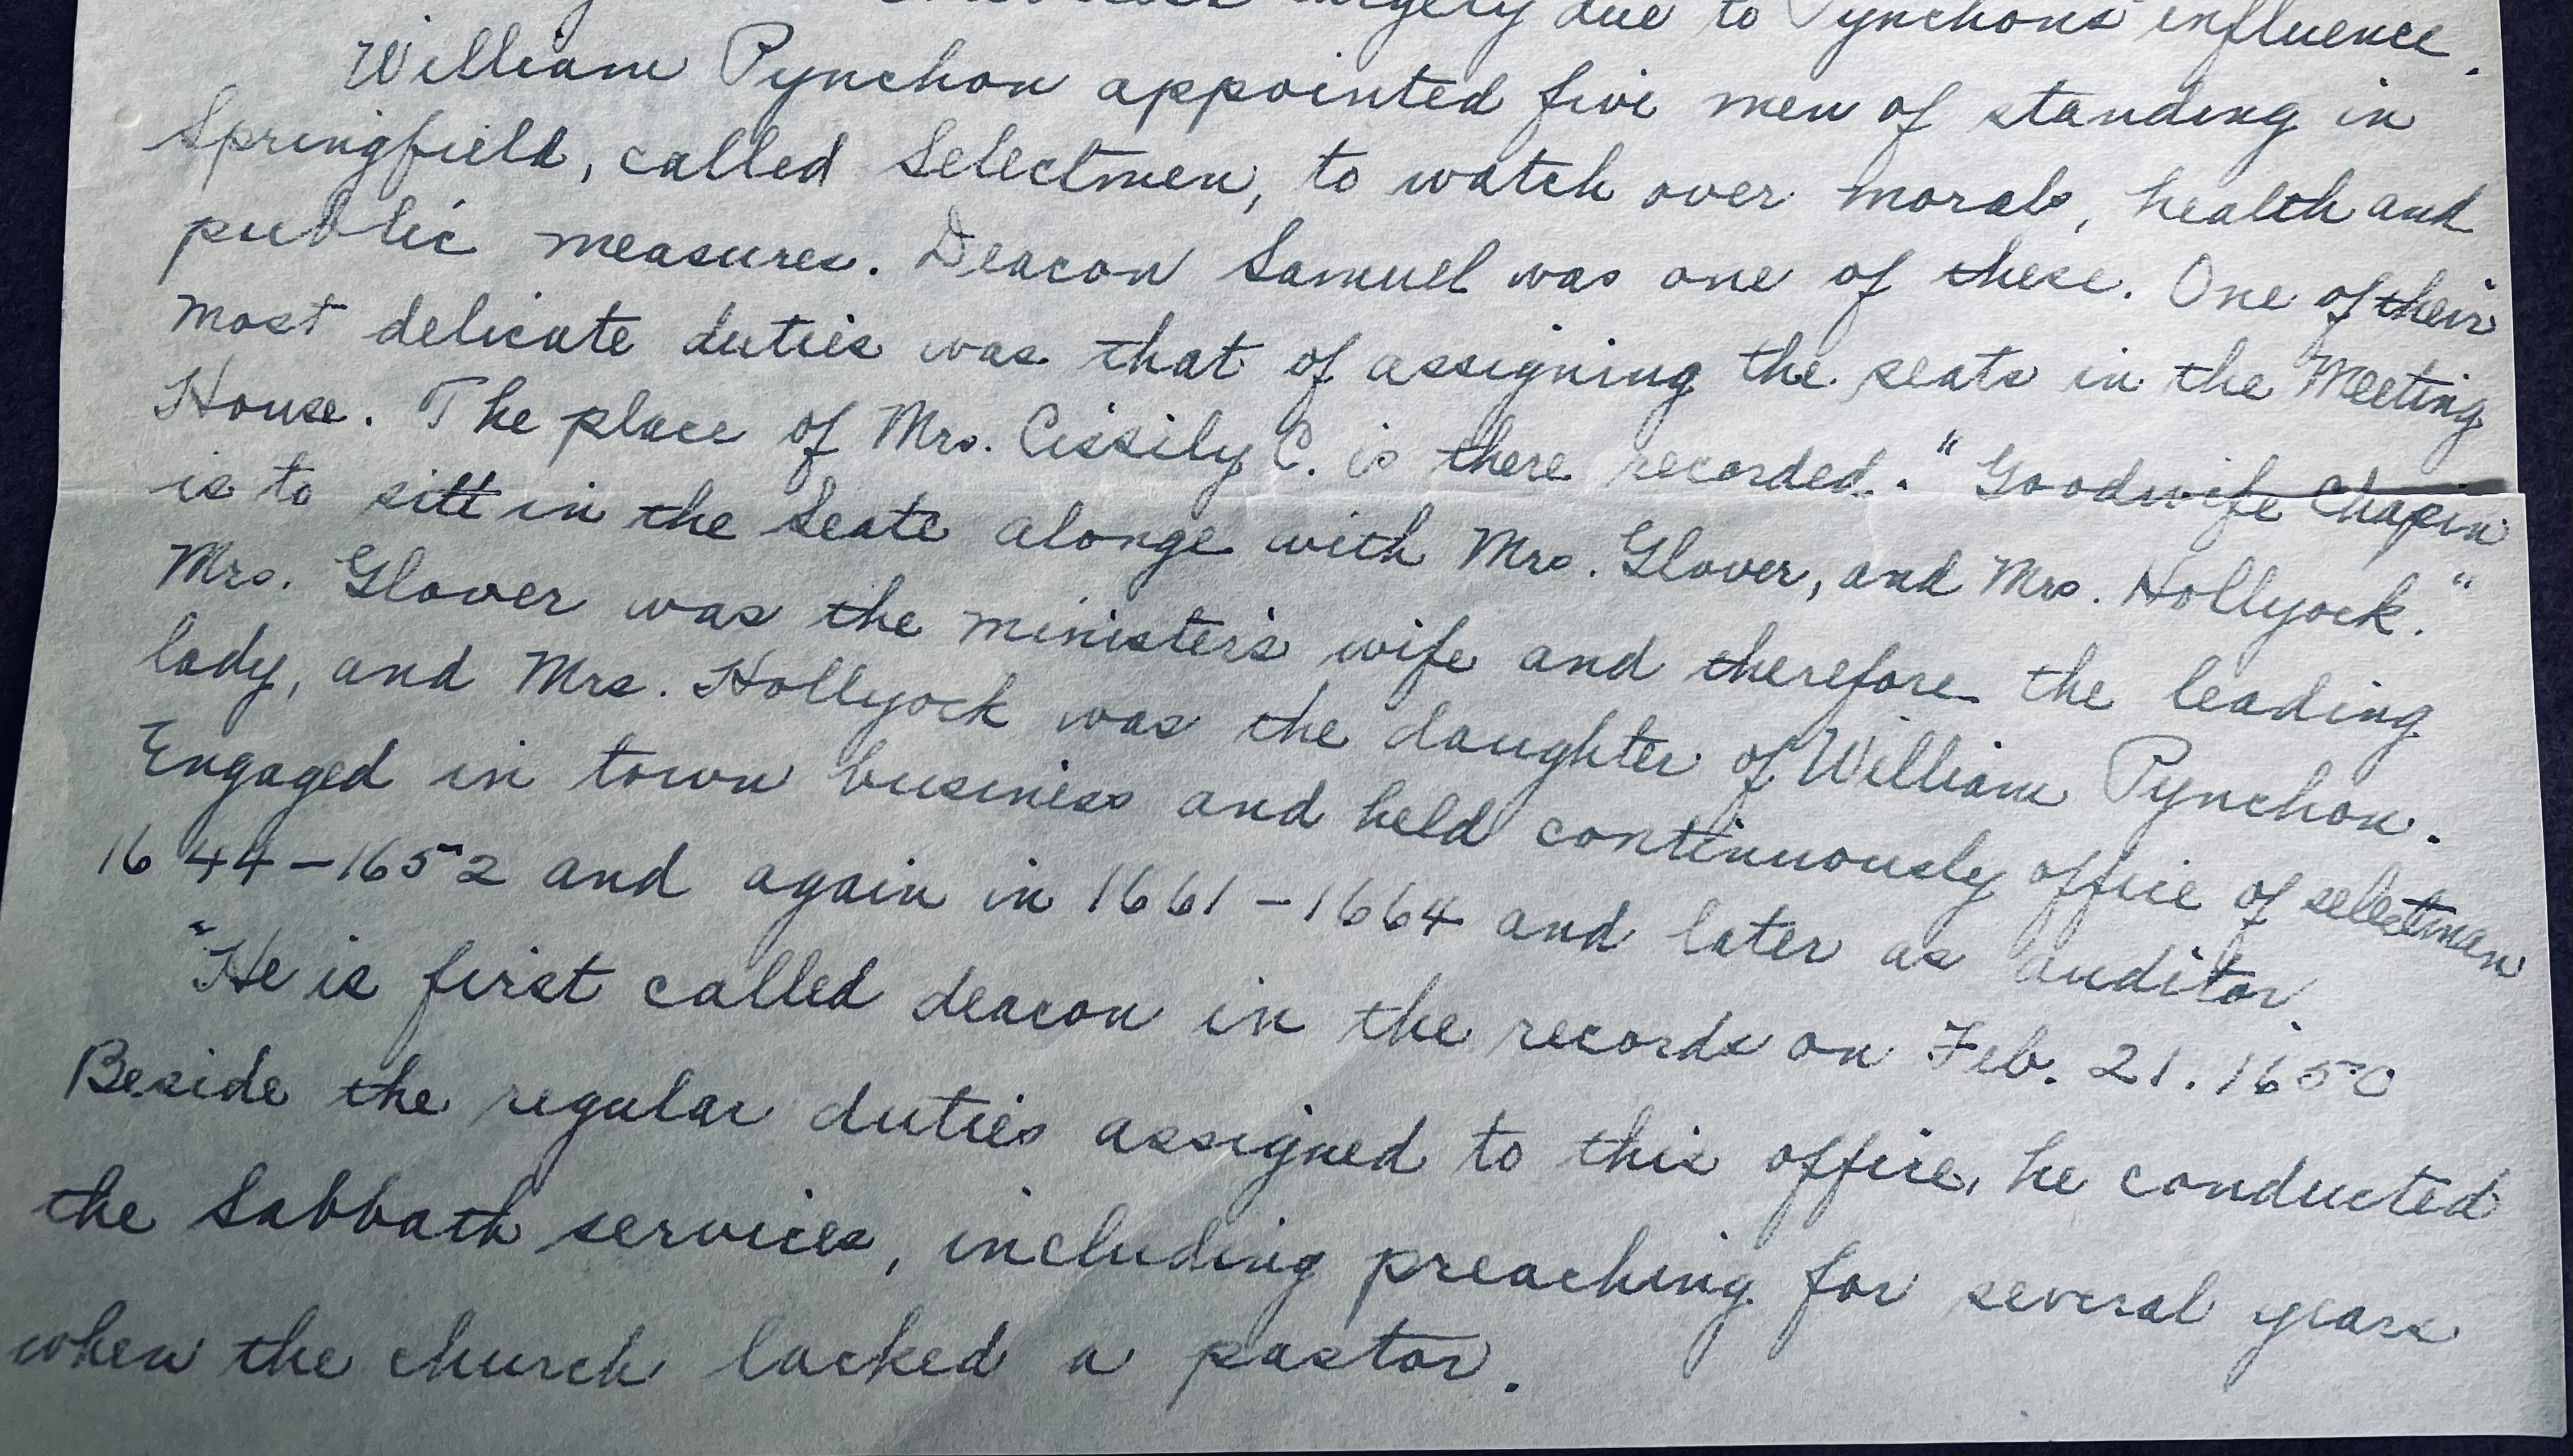 largely due to Pynchon's influence.
William Pynchon appointed five men of standing in
Springfield, called Selectmen, to watch over morals, health and
public measures. Deacon Samuel was one of these. One of their
most delicate duties was that of assigning the seats in the Meeting
House. The place of Mrs. Cissily C. is there recorded. "Goodwife Chapin
is to sitt in the Seate alonge with Mrs. Glover, and Mrs. Hollyock."
Mrs. Glover was the minister's wife and therefore the leading
lady, and Mrs. Hollyock was the daughter of William Pynchon.
Engaged in town business and held continuously office of selectman
1644-1652 and again in 1661-1664 and later as auditor.
"He is first called deacon in the records on Feb. 21. 1650
Beside the regular duties assigned to this office, he conducted
the Sabbath services, including preaching for several years
when the church lacked a pastor.